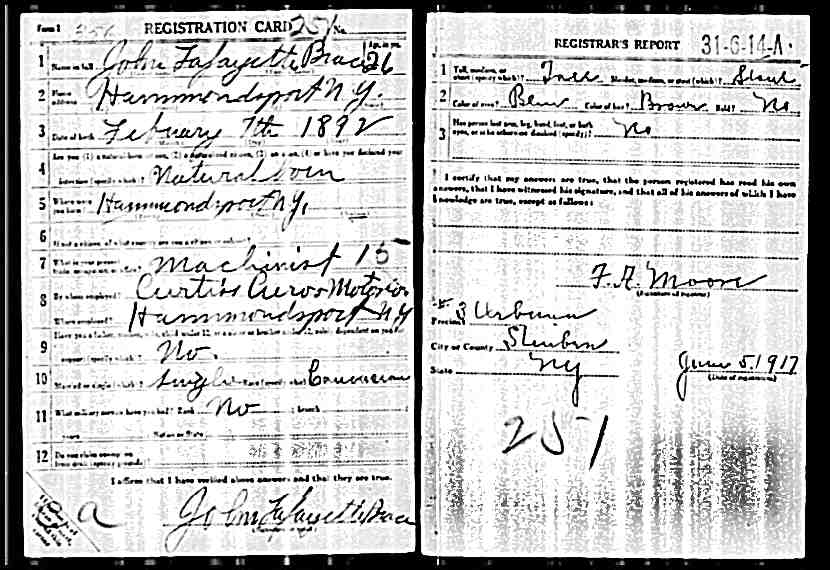 Form 1 REGISTRATION CARD 251 No.
1 Name in full John Lafayette Brace Age, in yrs. 26
2 Home address Hammondsport N.Y.
3 Date of birth February 7th 1892
4 Are you (1) a natural-born citizen, (2) a naturalized citizen, (3) an alien, (4) or have you declared your
intention (specify which)? Natural born
5 Where were you born? Hammondsport N.Y.
6 If not a citizen, of what country are you a citizen or subject?
7 What is your present trade, occupation, or office? Machinist 15
8 By whom employed? Curtiss Aero & Motor
Where employed? Hammondsport N.Y
9 Have you a father, mother, wife, child under 12, or a sister or brother under 12, solely dependent on you for
support (specify which)? No.
10 Married or single (which)? Single Race (specify which)? Caucasian
11 What military service have you had? Rank No ; branch
years ; Nation or State
12 Do you claim exemption from draft (specify grounds)?
I affirm that I have verified above answers and that they are true.
a John Lafayette Brace
REGISTRAR'S REPORT 31-6-14-A.
1 Tall, medium, or short (specify which)? Tall Slender, medium, or stout (which)? Stout
2 Color of eyes? Blue Color of hair? Brown Bald? No
3 Has person lost arm, leg, hand, foot, or both
eyes, or is he otherwise disabled (specify)? No
I certify that my answers are true, that the person registered has read his own
answers, that I have witnessed his signature, and that all of his answers of which I have
knowledge are true, except as follows:
F. A. Moore
(Signature of registrar)
Precinct 3 Urbana
City or County Steuben
State NY June 5. 1917
(Date of registration)
251